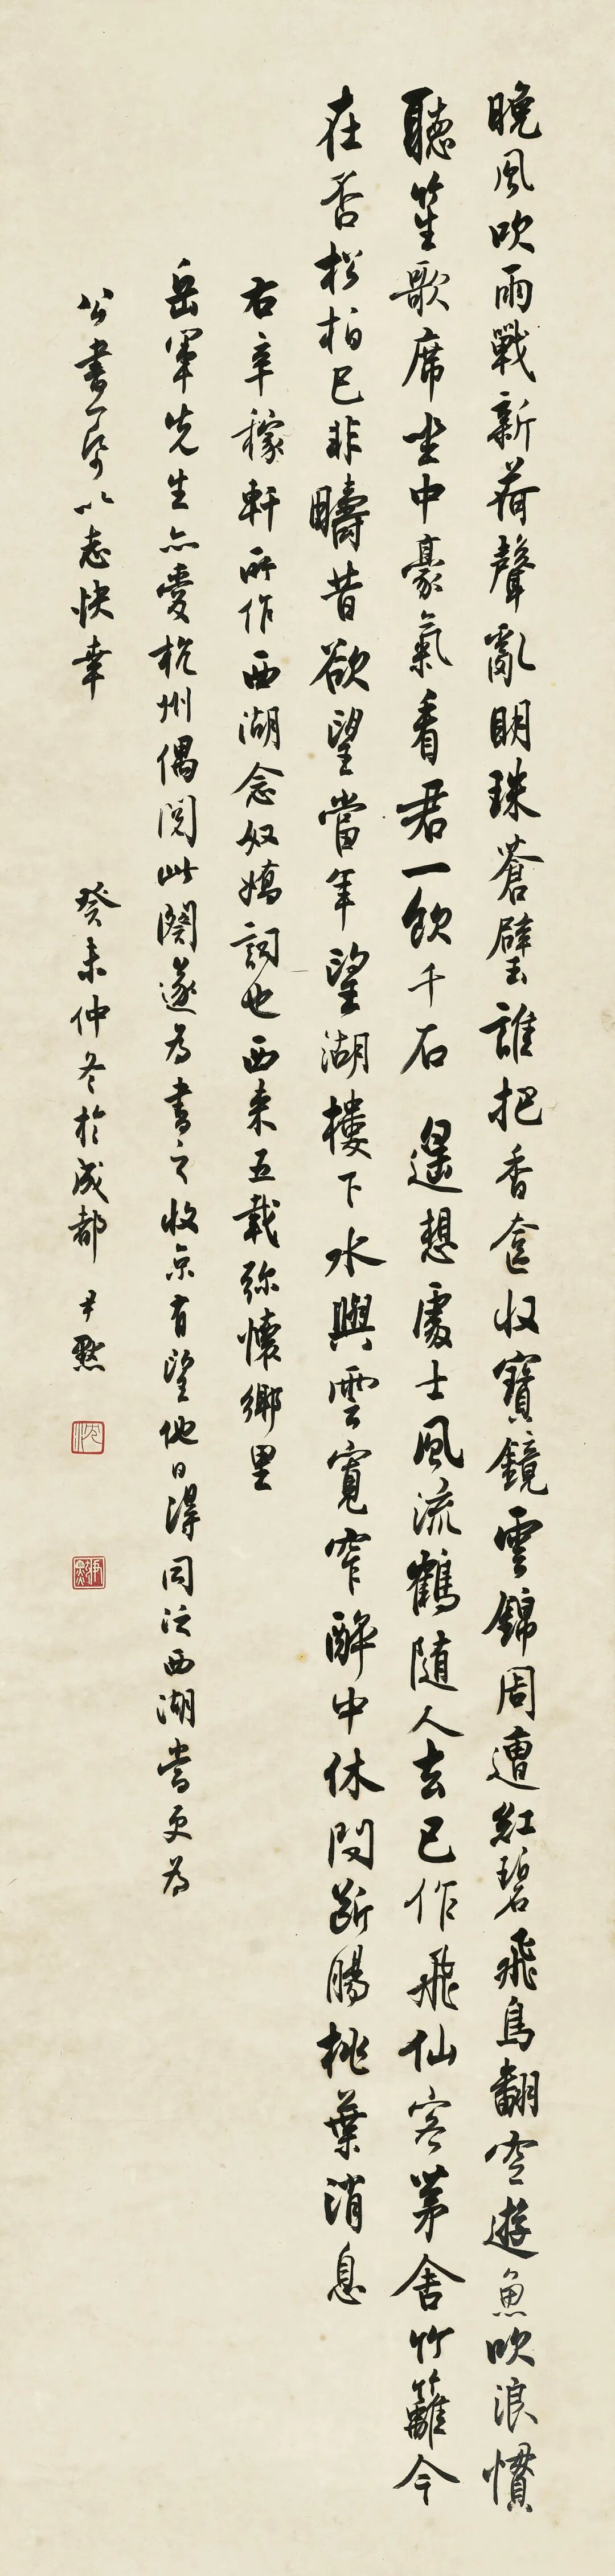 晚風吹雨戰新荷聲亂明珠蒼璧誰把香奩收寶鏡雲錦周遭紅碧飛鳥翻空遊魚吹浪慣
聽笙歌席坐中豪氣看君一飲千石 遙想處士風流鶴隨人去已作飛仙客茅舍竹籬今
在否松柏已非疇昔欲望當年望湖樓下水與雲寬窄醉中休問斷腸桃葉消息
右辛稼軒所作西湖念奴嬌詞也西来五載弥懷鄉里
岳軍先生亦愛杭州偶閱此闋遂為書之收京有望他日得同泛西湖當更為
公書一層以志快幸 癸未仲冬於成都 尹默
沈
尹默